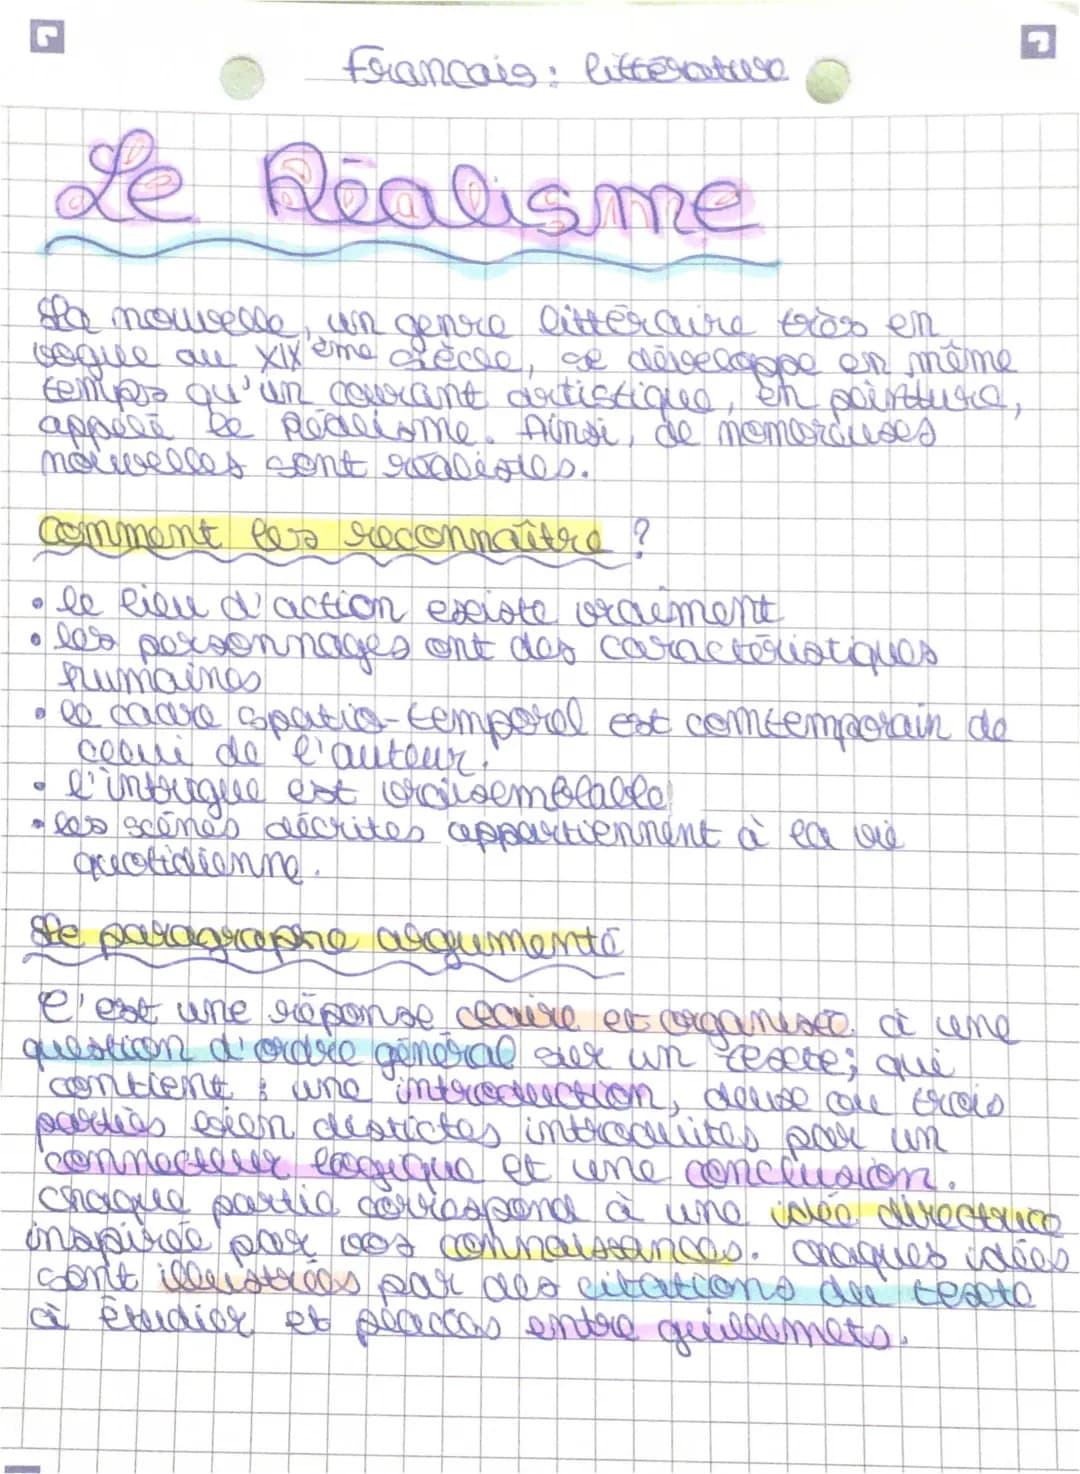 Français : littérature
Le Réalisme
La nouvelle, un genre littéraire très en
vogue au XIXème siècle, se développe en même
temps qu'un courant artistique, en peinture,
appelé le Réalisme. Ainsi, de nomoreuses
nouvelles sont réalistes.
Comment les reconnaître ?
• le lieu d'action existe vraiment
• les personnages ont des caractéristiques
humaines
• le cadre spatio-temporel est comtemporain de
celui de l'auteur.
• l'intrigue est vraisemblable
• les scènes décrites appartiennent à la vie
quotidienne.
Le paragraphe argumenté
C'est une réponse claire et organisée à une
question d'ordre général sur un texte; qui
contient : une introduction, deux ou trois
parties bien distictes introduites par un
connecteur logique et une conclusion.
Chaque partie correspond à une idée directrice
inspirée par vos connaissances. Chaques idées
sont illustrées par des citations du texte
à étudier et placées entre guillemets.